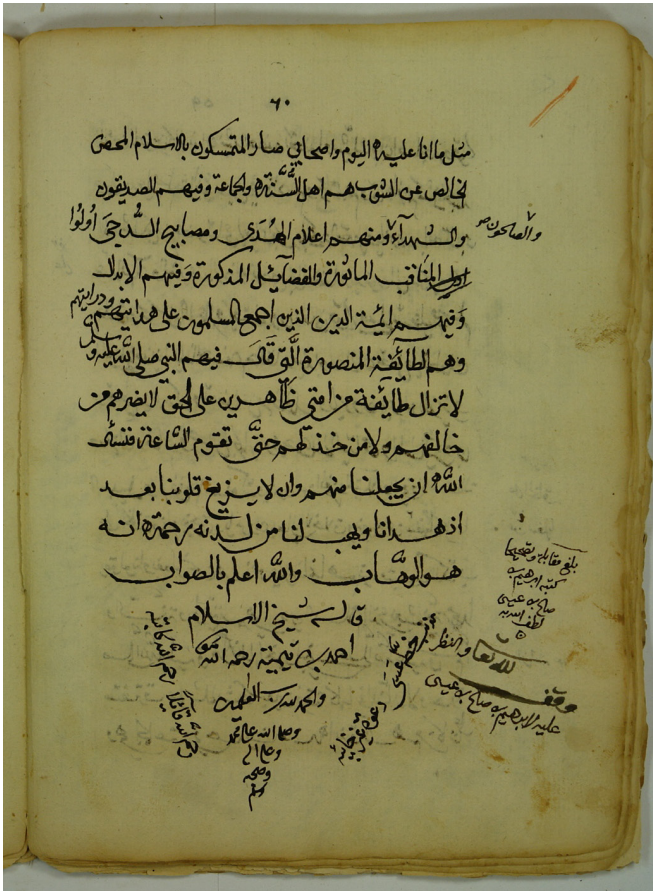 ٦٠
مثل ما انا عليه اليوم واصحابي صار المتمسكون بالاسلام المحض
الخالص عن الشوب هم اهل السُّنَّة والجماعة وفيهم الصديقون
والشهدآء ومنهم اعلام الهُدَى ومصابيح الدُّجَى اُولُوا
والصالحون صح
المناقب الماثورة والفضآئل المذكورة وَفيهم الابدال
وَفيهم ائمة الدين الذين اجمع المسلمون على هدايتهم
ودرايتهم
وهم الطآئفة المنصورة الَّتي قَال فيهم النبي صلى الله عليه وسلم
لا تزال طآئفة من امتي ظاهرين على الحق لا يضرهم من
خالفهم ولا من خذلهم حتَّى تقوم السَّاعة فنسئل
اللّٰه ان يجعلنا منهم وان لا يزيغ قلوبنا بعد
اذ هدانا ويهب لنا من لدنه رحمة انه
هو الوهَّاب والله اعلم بالصواب
قاله شيخ الاسلام
احمد بن تيمية رحمه الله
والحمد لله رب العلمين
وصلى الله على محمد
وعلى اله
وصحبه
وسلم
بلغ مقابلة وتصحيحا
كتبه ابرهيم بن
صالح بن عيسى
لطف الله به
لله تعالى والنظر
وقف
عليه لابرهيم بن صالح بن عيسى